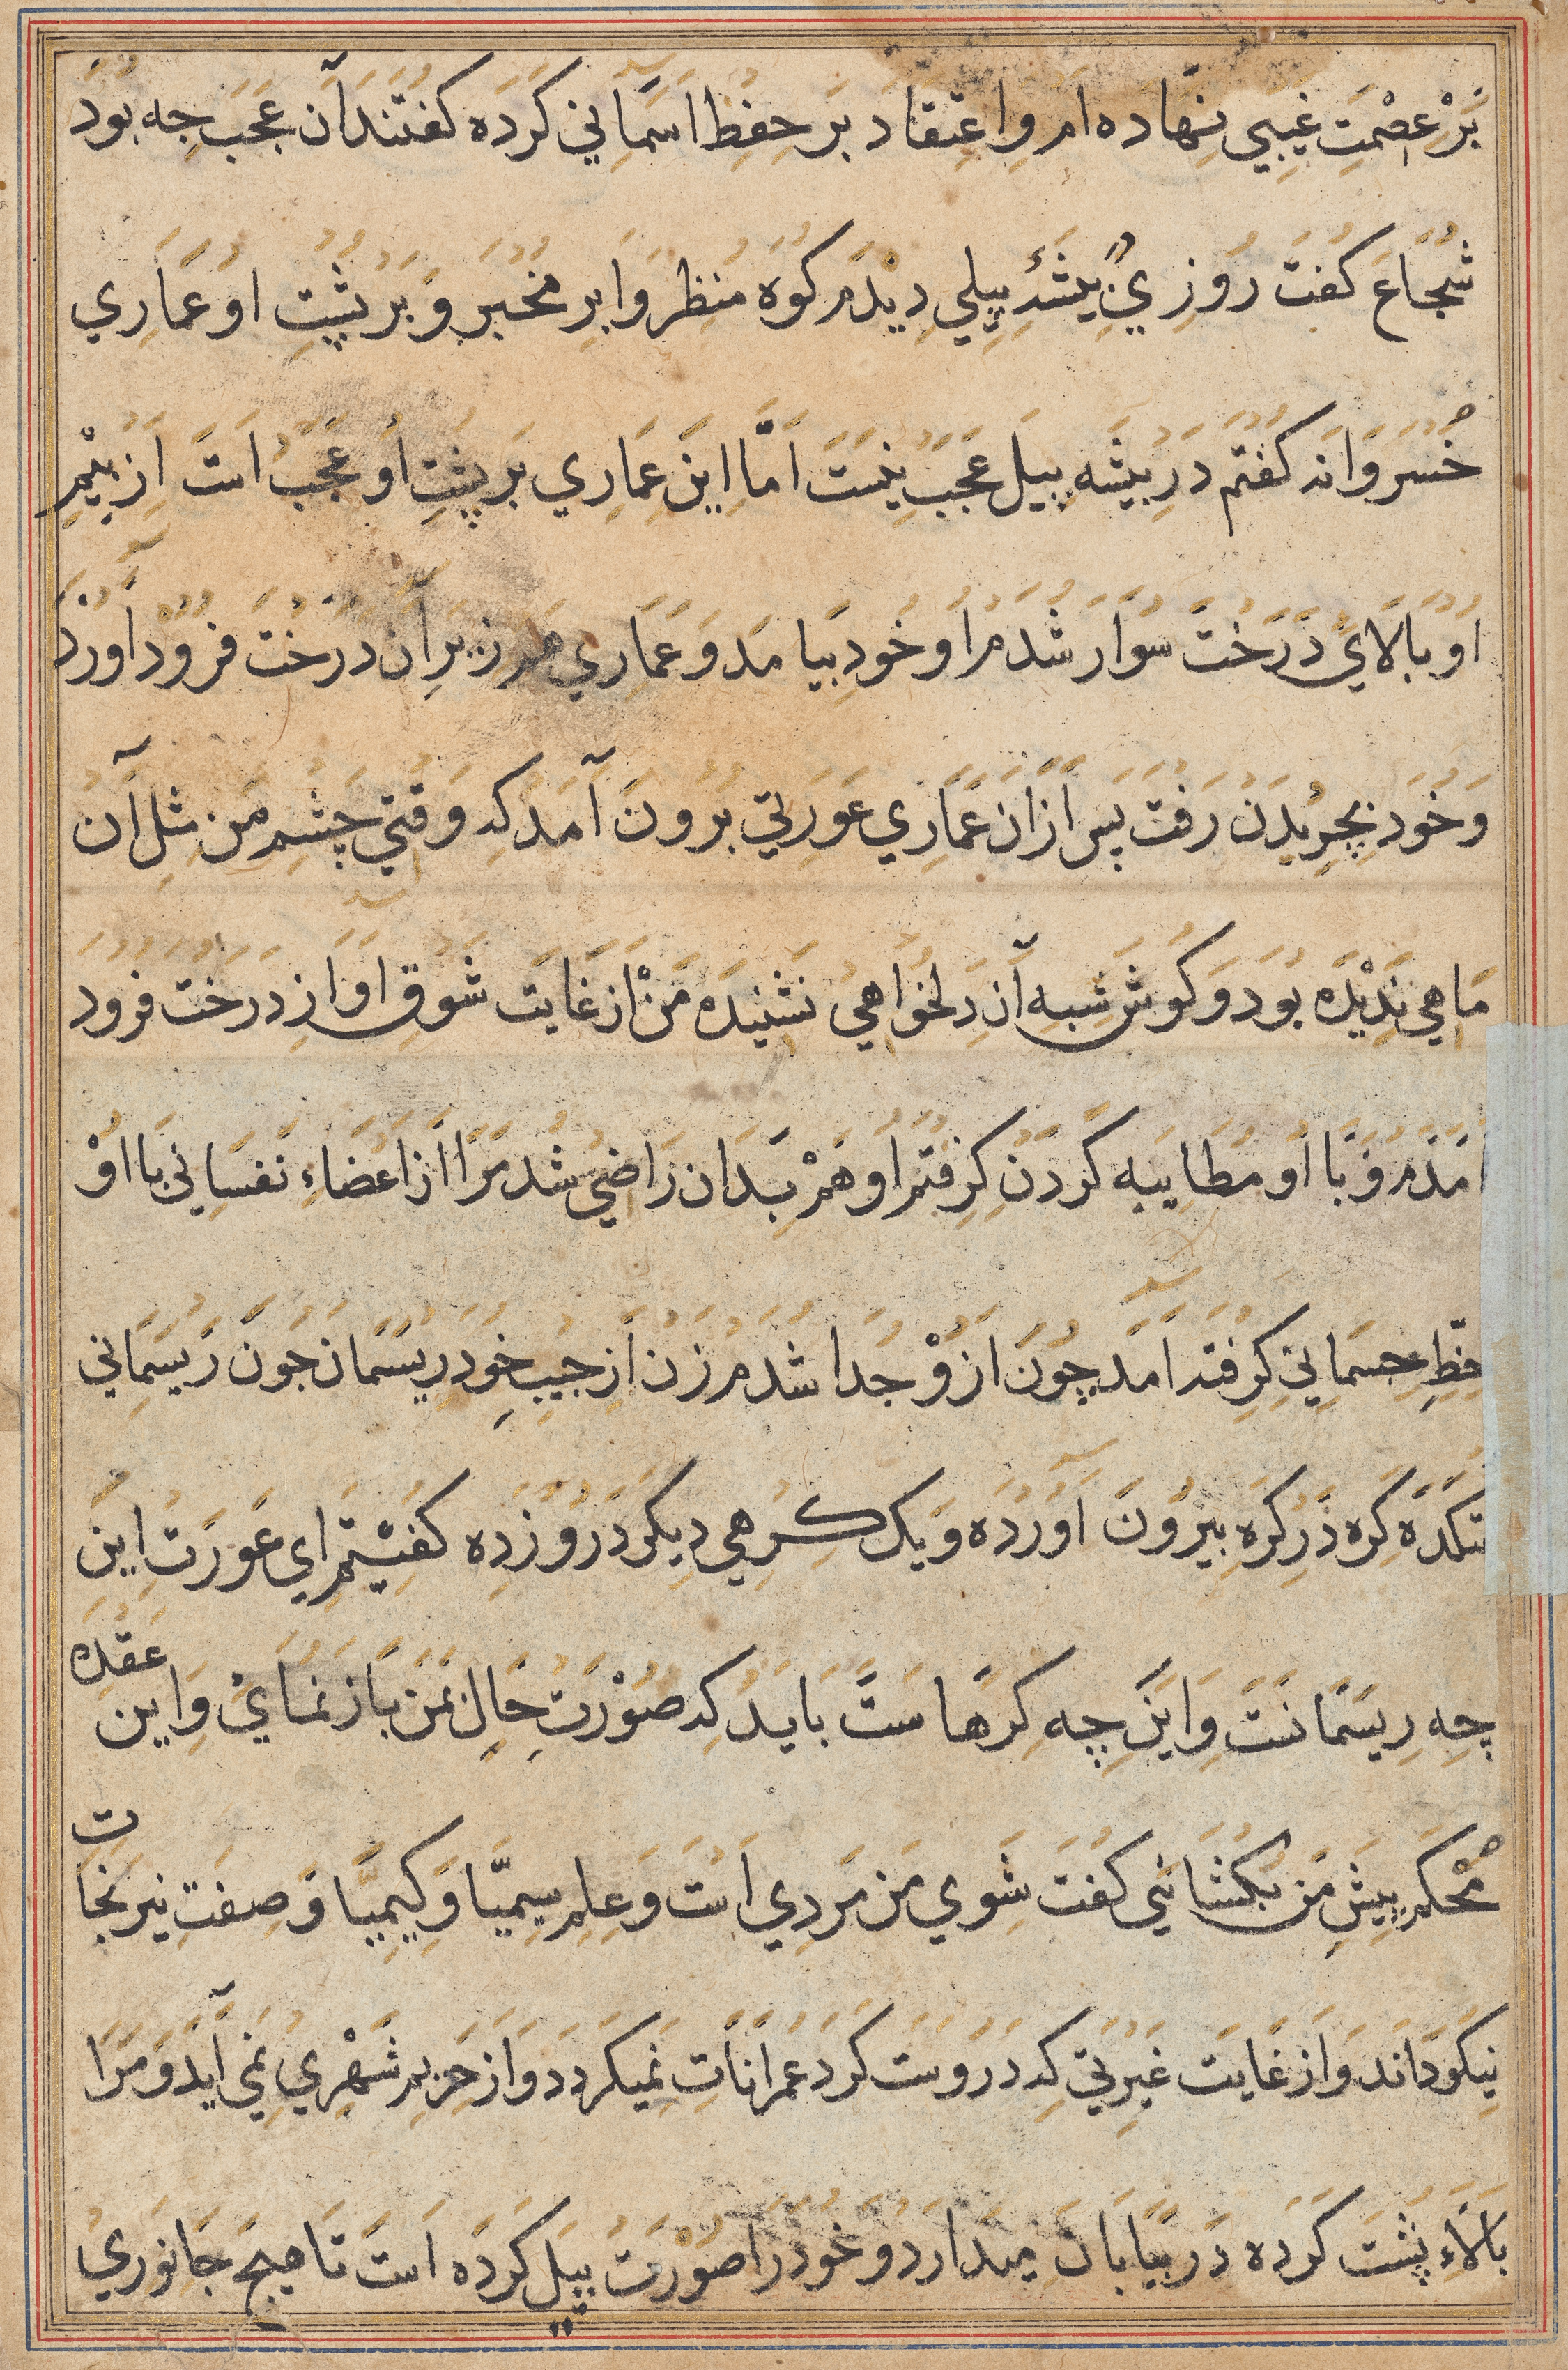 بَرْ عِصْمَتِ غَيبي نهاده ام وَاعتقاد بر حفظ اسماني كرده كفتند آن عجب جه بود
شجاع كفت روزي بيشۀ پيلي ديدم كوه منظر وابر مخبر و بر پشت او عماري
خسروانه كفتم در بيشه پيل عجب نيست اما اين عماري بر پشت او عجب است از بيم
او بالاي درخت سوار شدم او خود بيامد و عماري زير آن درخت فرود آورد
و خود بچريدن رفت پس ازان عماري عورتي برون آمد كه وقتي چشم من مثل آن
ماهي نديده بود و كوش شبه آن دلخواهي نشنيده من از غايت شوق او از درخت فرود
امدم و با او مطايبه كردن كرفتم او هم بدان راضي شد مرا از اعضاء نفساني با او
حظ جسماني كرفته امد چون ازو جدا شدم زن از جيب خود ريسمان جون ريسماني
كره در كره بيرون آورده و يك كرهي ديكر درو زده كفتم اي عورت اين
چه ريسمانست و اين چه كرهاست بايد كه صورت حال بمن باز نماي و اين عقده
محكم پيش من بكشائي كفت شوي من مردي است و علم سيميا و كيميا و صفت نيرنجات
نيكو داند و از غايت غيرتي كه دروست كرد عمرانات نميكردد و از حريم شهري نمي آيد و مرا
بالاء پشت كرده در بيابان ميدارد و خود را صورت پيل كرده است تا هيج جانوري